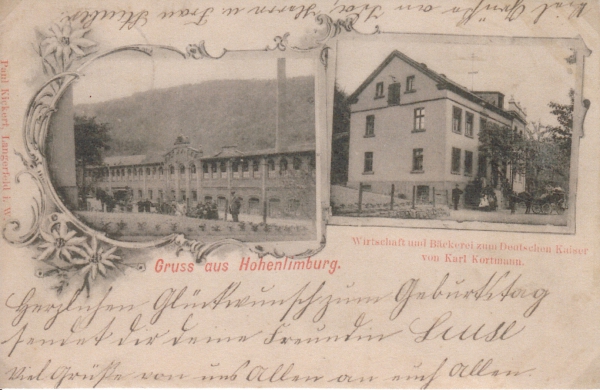 viel Grüße an Ida, Herrn u Frau
Paul Kickert, Langerfeld i. W.
Wirtschaft und Bäckerei zum Deutschen Kaiser
von Karl Kortmann.
Gruss aus Hohenlimburg.
Herzlichen Glückwunsch zum Geburtstag
sendet dir deine Freundin Luise
Viel Grüße von uns Allen an euch Allen.